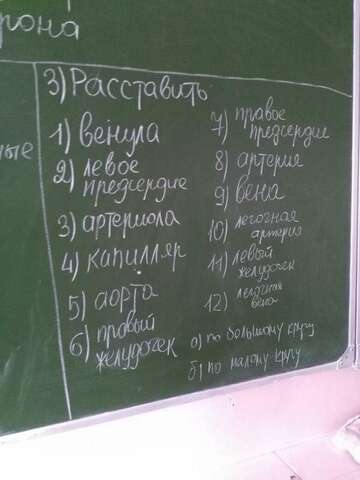 рона
ные
3) Расставить
1) венула
2) левое
предсердие
3) артериола
4) капилляр
5) аорта
6) правый
желудочек
7) правое
предсердие
8) артерия
9) вена
10) легочная
артерия
11) левый
желудочек
12) легочная
вена
а) по большому кругу
б) по малому кругу